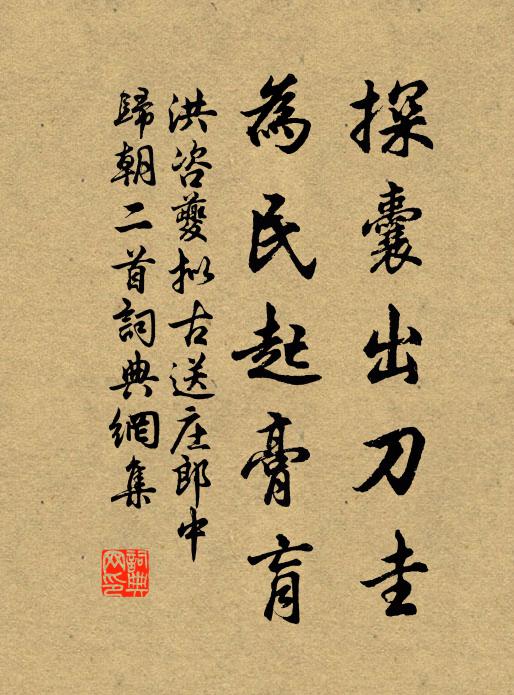 探囊出刀圭
為民起膏肓
洪咨夔拟古送庄郎中
歸朝二首詞典網集
詞典网印